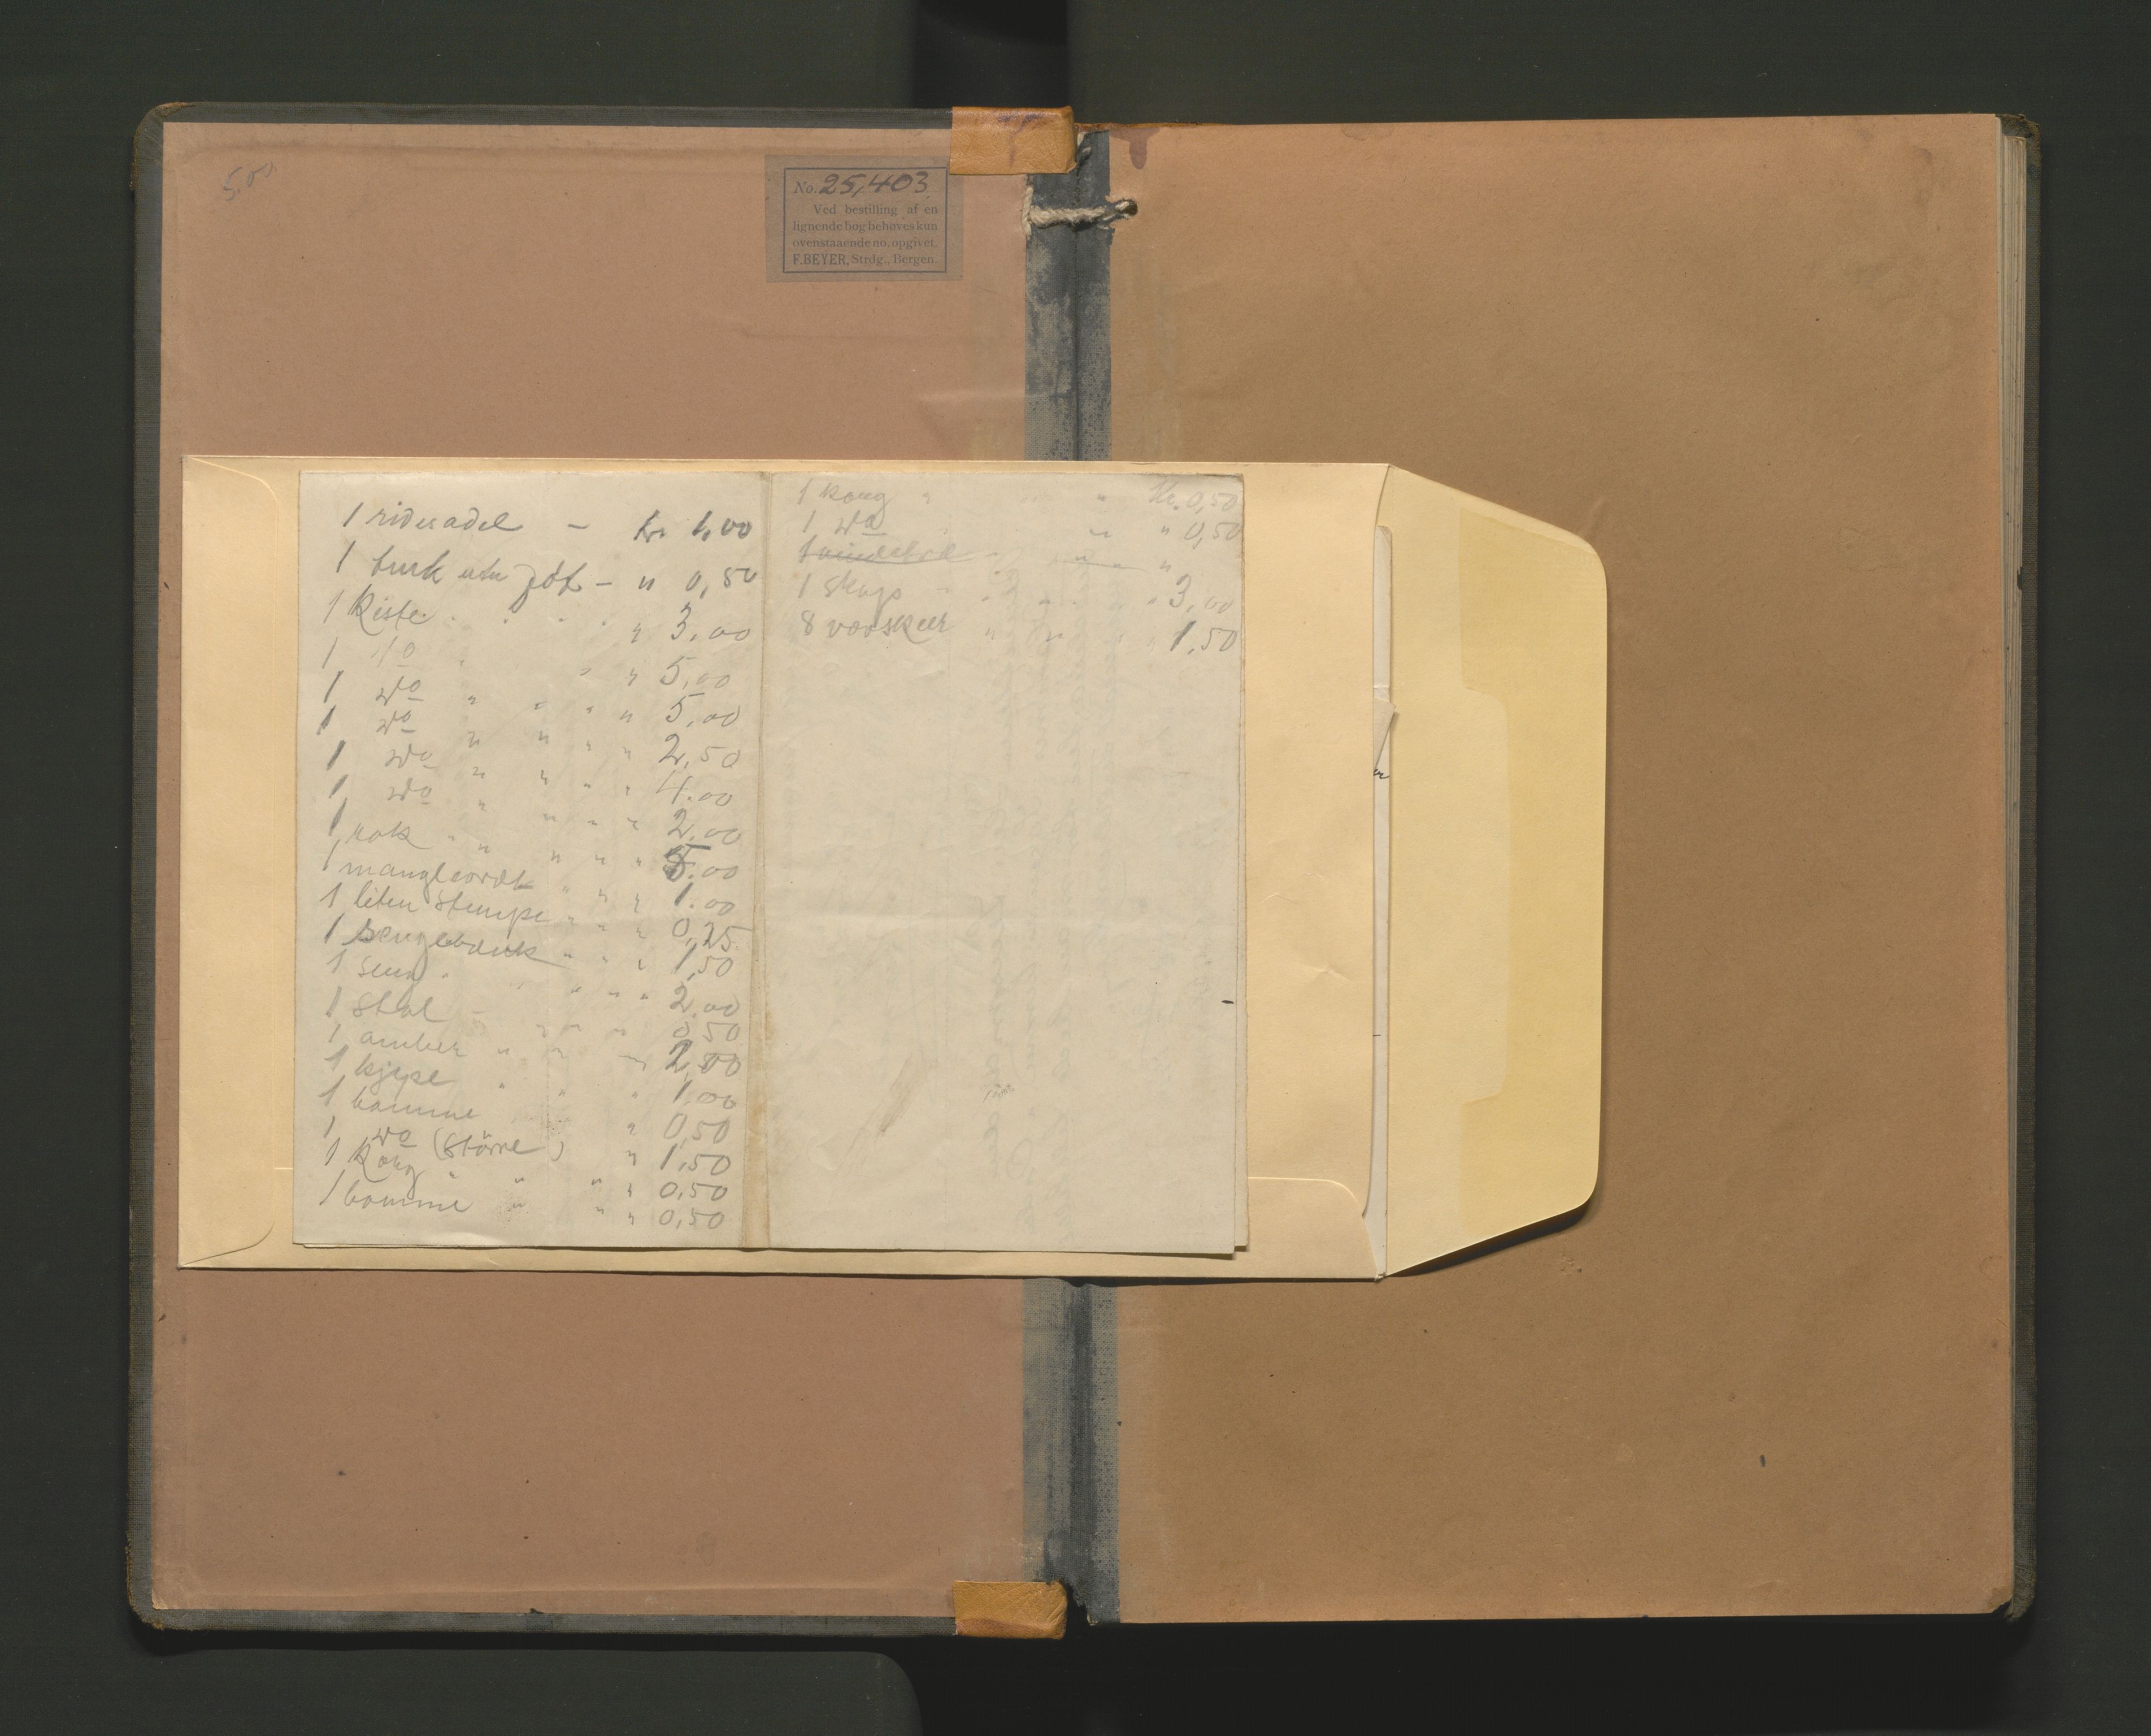 5.00
No. 25,403
Ved bestilling af en
lignende bog behøves kun
ovenstaaende no. opgivet.
F. BEYER, Strdg., Bergen.
1 ridesadel — kr 1,00
1 turk utn föt — " 0,50
1 Kiste " 3,00
1 do " " 5,00
1 do " " " " 5,00
1 do " " " " 2,50
1 do " " " " 4.00
1 do " " " " 2.00
1 rok " " " " " 5.00
1 manglordt " " " 1.00
1 liten stempe " " " 0,25
1 sengebænk " " " 1,50
1 seng " " " " 2.00
1 stol - " " " 0 50
1 amber " " 2,00
1 kjepe " " " 1.00
1 bomme " 0,50
1 do (större) " 1,50
1 Korg " " " " 0,50
1 bomme " " " 0,50
1 korg " " Kr. 0,50
1 do " " 0,50
1 skap " " 3,00
8 vævskeer " " " 1,50